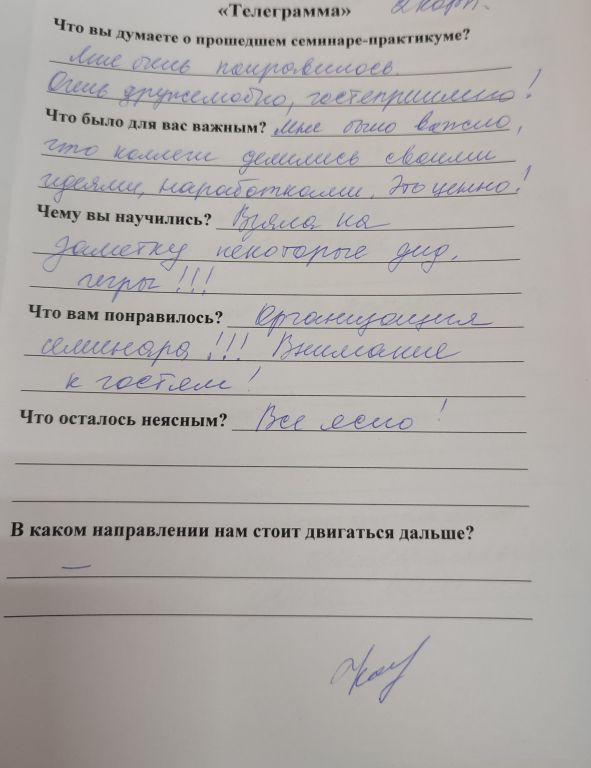 «Телеграмма» 2 корп.
Что вы думаете о прошедшем семинаре-практикуме?
Мне очень понравилось.
Очень дружелюбно, гостеприимно!
Что было для вас важным? Мне было важно,
что коллеги делились своими
идеями, наработками. Это ценно!
Чему вы научились? Взяла на
заметку некоторые дид.
игры!!!
Что вам понравилось? Организация
семинара!!! Внимание
к гостям!
Что осталось неясным? Все ясно!
В каком направлении нам стоит двигаться дальше?
—